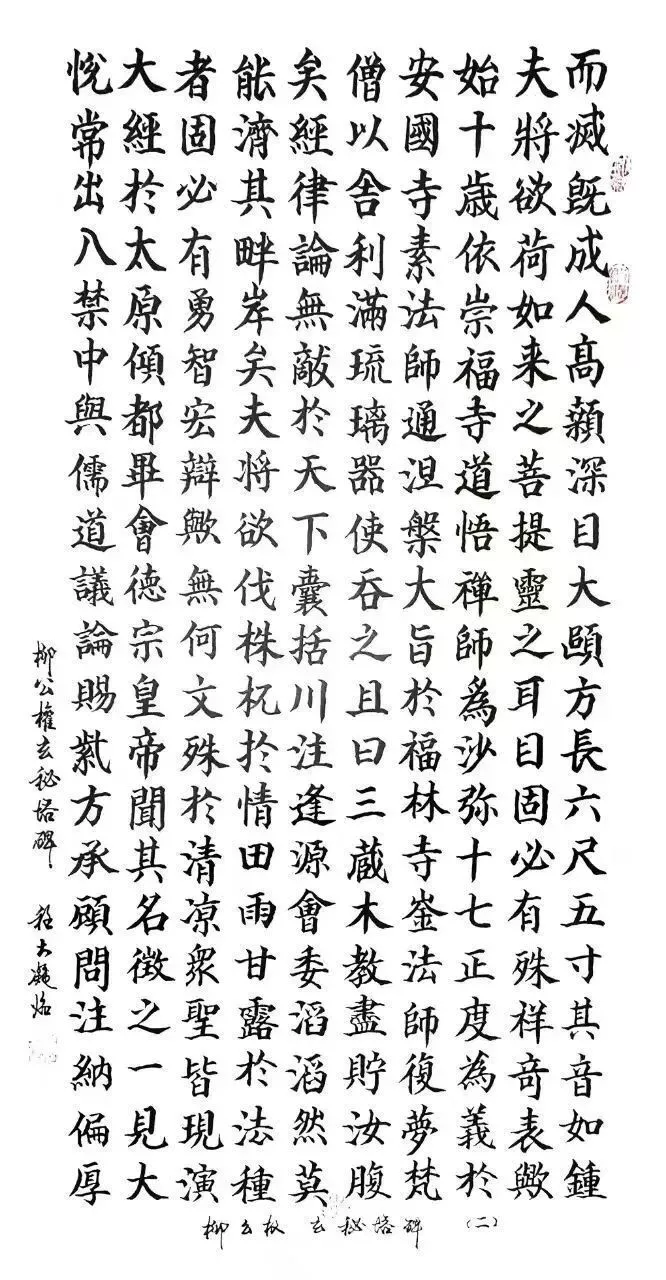 而滅既成人高顙深目大頤方長六尺五寸其音如鍾
夫將欲荷如来之菩提靈之耳目固必有殊祥竒表歟
始十歲依崇福寺道悟禪師爲沙弥十七正度為義於
安國寺素法師通涅槃大旨於福林寺崟法師復夢梵
僧以舍利滿琉璃器使吞之且曰三藏木教盡貯汝腹
矣經律論無敵於天下囊括川注逢源會委滔滔然莫
能濟其畔岸矣夫将欲伐株杌於情田雨甘露於法種
者固必有勇智宏辯歟無何文殊於清凉衆聖皆現演
大經於太原傾都畢會德宗皇帝聞其名徵之一見大
悅常出八禁中與儒道議論賜紫方承顧問注納偏厚
柳公權玄秘塔碑
柳公权 玄秘塔碑 （二）